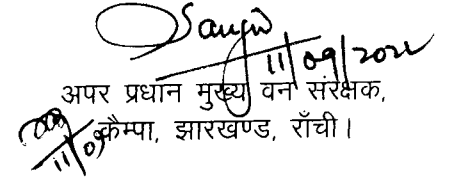 11/09/2021
अपर प्रधान मुख्य वन संरक्षक,
कैम्पा, झारखण्ड, राँची।
11/09